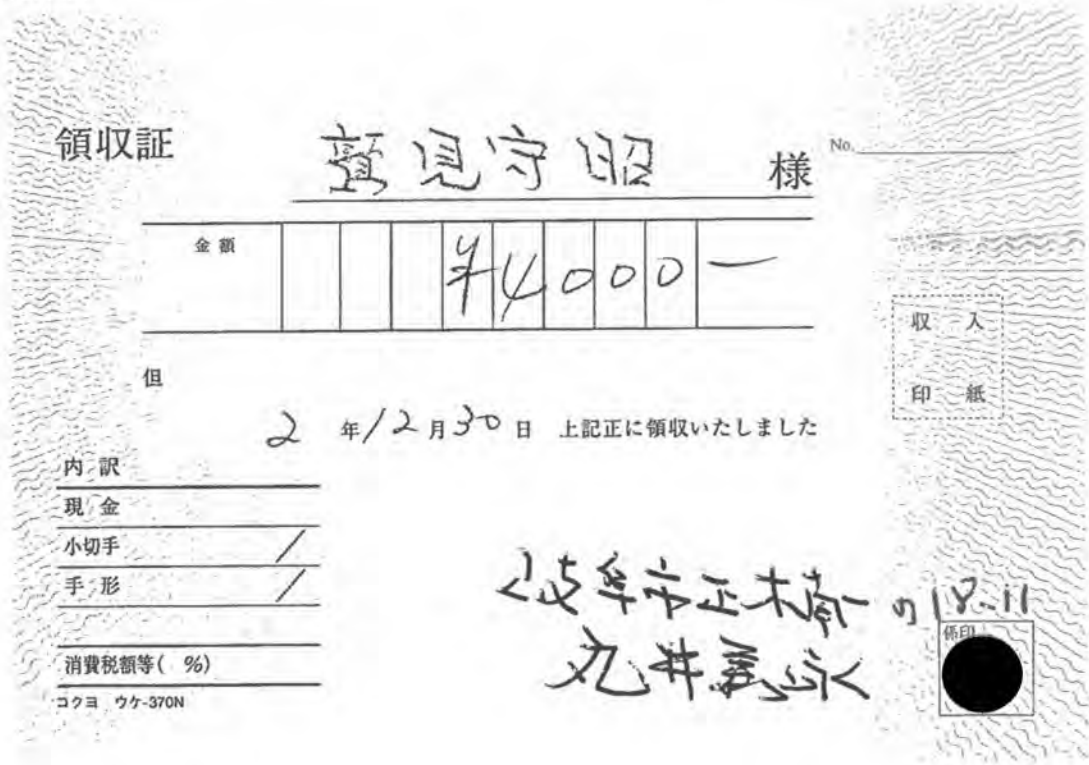 領収証
鷲見守昭 様
No.
金額 ¥4000-
但
2年12月30日 上記正に領収いたしました
収入
印紙
内訳
現金
小切手 /
手形 /
消費税額等( %)
コクヨ ウケ-370N
岐阜市正木 の 18-11
丸井
係印